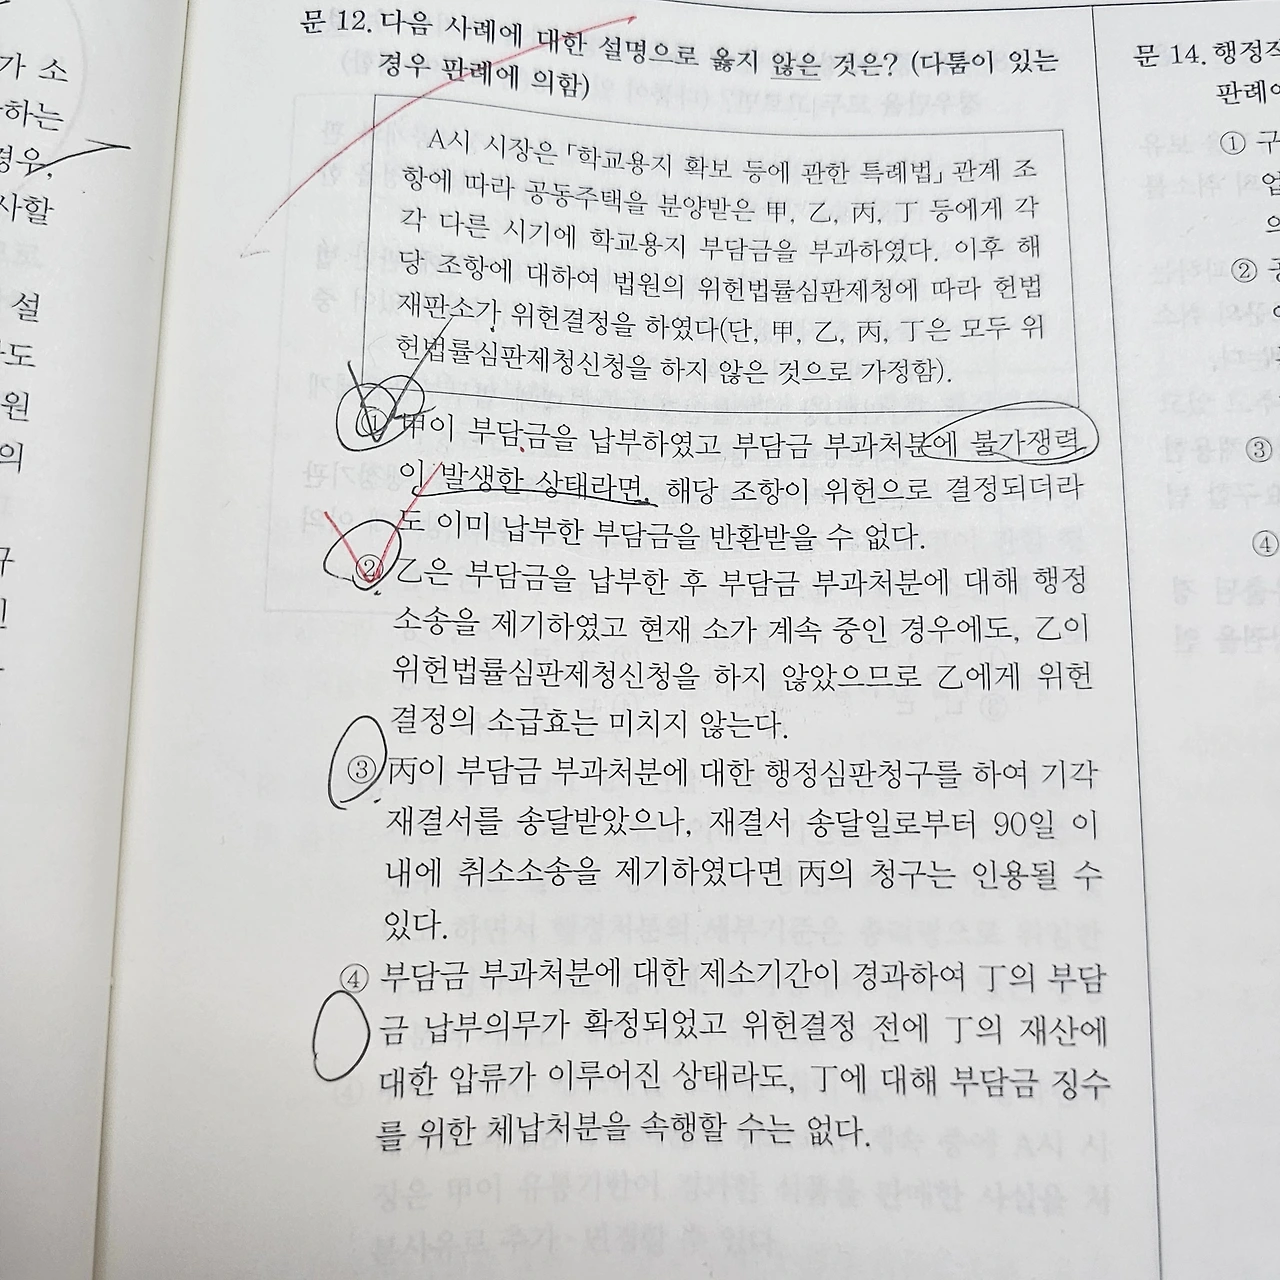 가 소
하는
경우,
사할
설
도
원
의
구
문 12. 다음 사례에 대한 설명으로 옳지 않은 것은? (다툼이 있는
경우 판례에 의함)
A시 시장은 「학교용지 확보 등에 관한 특례법」 관계 조
항에 따라 공동주택을 분양받은 甲, 乙, 丙, 丁 등에게 각
각 다른 시기에 학교용지 부담금을 부과하였다. 이후 해
당 조항에 대하여 법원의 위헌법률심판제청에 따라 헌법
재판소가 위헌결정을 하였다(단, 甲, 乙, 丙, 丁은 모두 위
헌법률심판제청신청을 하지 않은 것으로 가정함).
① 甲이 부담금을 납부하였고 부담금 부과처분에 불가쟁력
이 발생한 상태라면, 해당 조항이 위헌으로 결정되더라
도 이미 납부한 부담금을 반환받을 수 없다.
② 乙은 부담금을 납부한 후 부담금 부과처분에 대해 행정
소송을 제기하였고 현재 소가 계속 중인 경우에도, 乙이
위헌법률심판제청신청을 하지 않았으므로 乙에게 위헌
결정의 소급효는 미치지 않는다.
③ 丙이 부담금 부과처분에 대한 행정심판청구를 하여 기각
재결서를 송달받았으나, 재결서 송달일로부터 90일 이
내에 취소소송을 제기하였다면 丙의 청구는 인용될 수
있다.
④ 부담금 부과처분에 대한 제소기간이 경과하여 丁의 부담
금 납부의무가 확정되었고 위헌결정 전에 丁의 재산에
대한 압류가 이루어진 상태라도, 丁에 대해 부담금 징수
를 위한 체납처분을 속행할 수는 없다.
문 14. 행정
판례
① 구
업
의
②
③
④